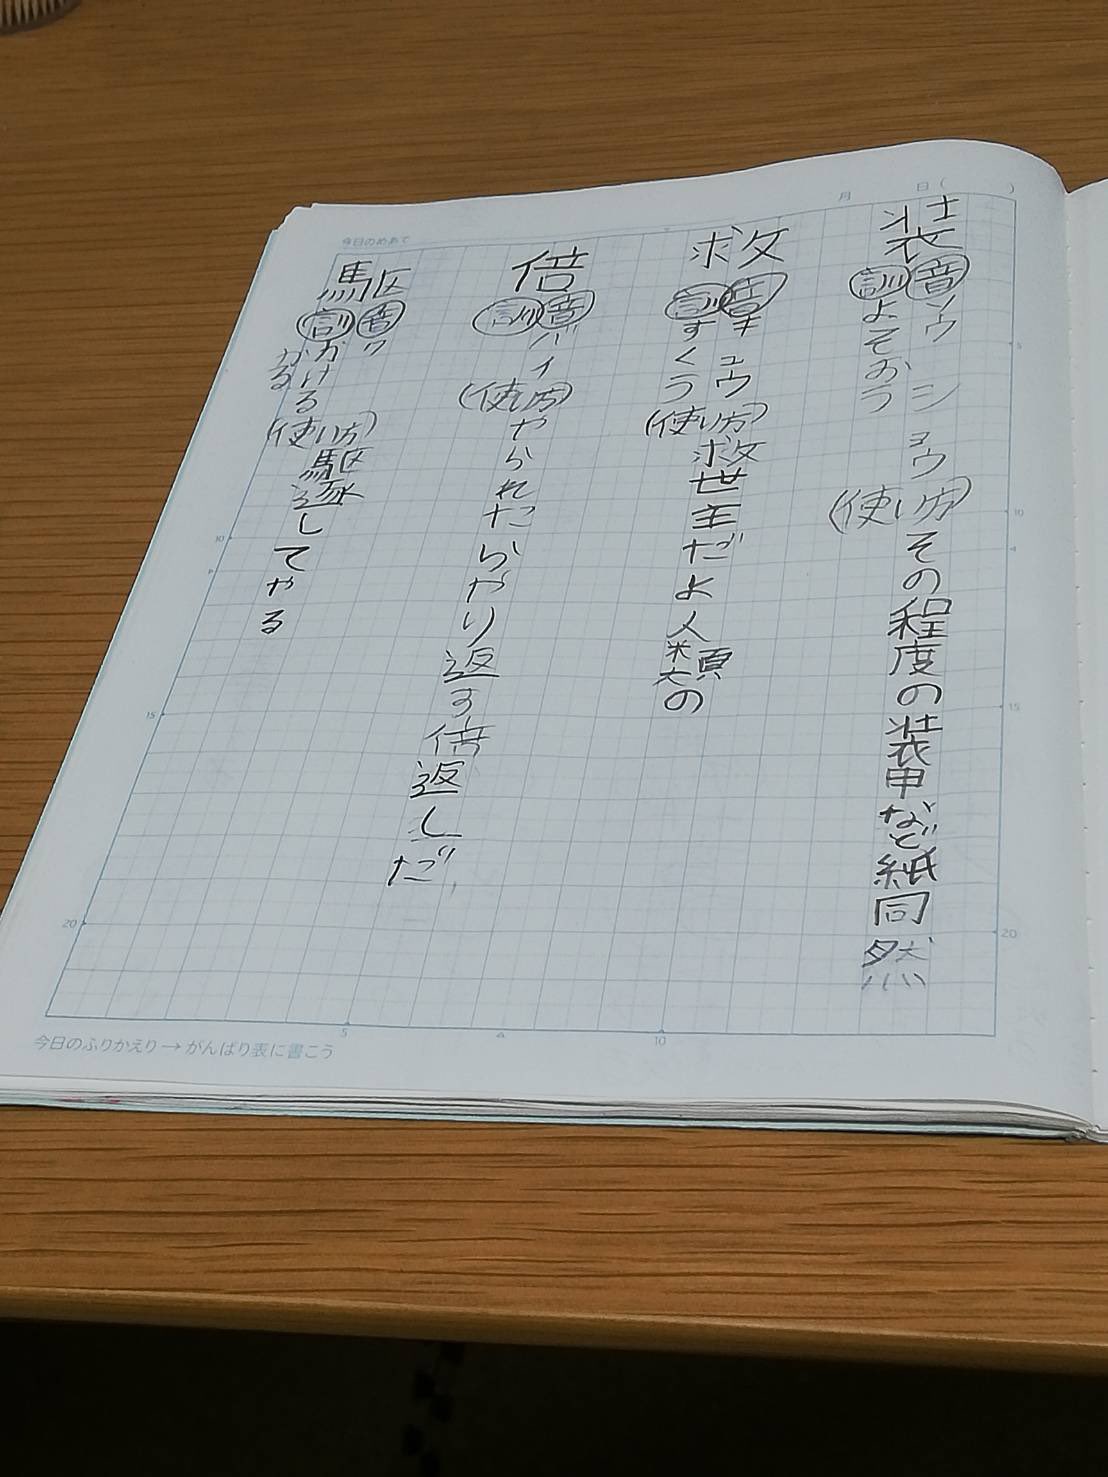 月 日( )
今日のめあて
装
音ソウ ショウ
訓よそおう
(使い方)その程度の装甲など紙同然
救
音キュウ
訓すくう
(使い方)救世主だよ人類の
倍
音バイ
訓
(使い方)やられたらやり返す倍返しだ
駆
音ク
訓かける
かる
(使い方)駆逐してやる
5
10
15
20
10
15
20
5
10
今日のふりかえり→がんばり表に書こう